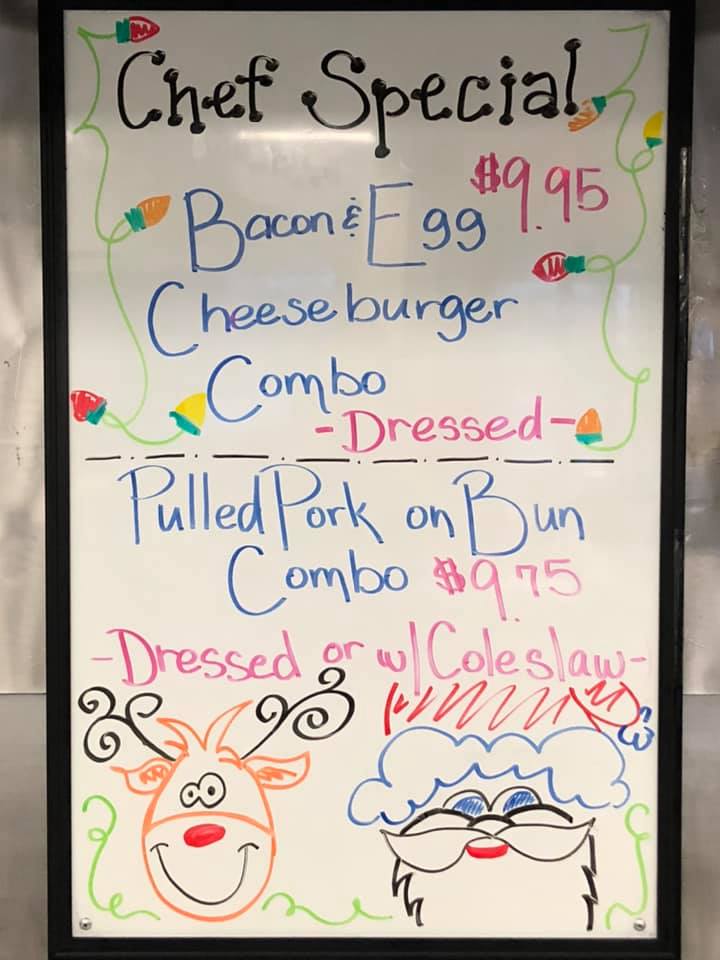 Chef Special
$9.95
Bacon & Egg
Cheeseburger
Combo
-Dressed-
Pulled Pork on Bun
Combo $9.75
-Dressed or w/Coleslaw-